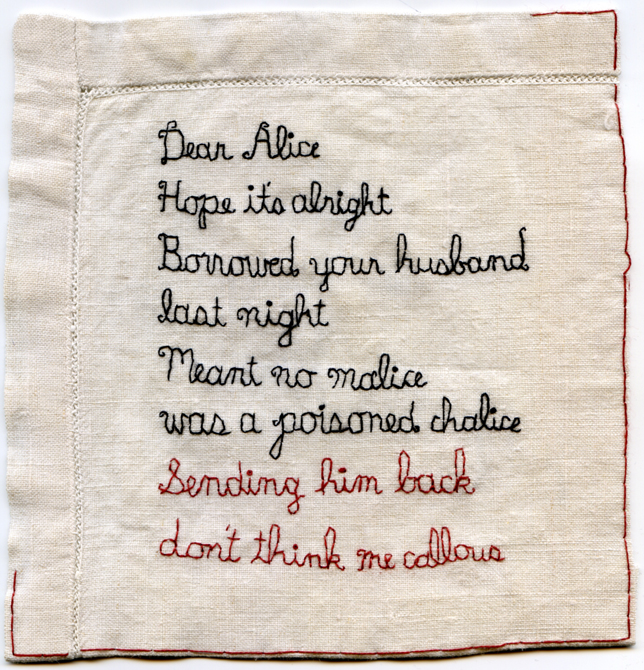 Dear Alice
Hope it's alright
Borrowed your husband
last night
Meant no malice
was a poisoned chalice
Sending him back
don't think me callous